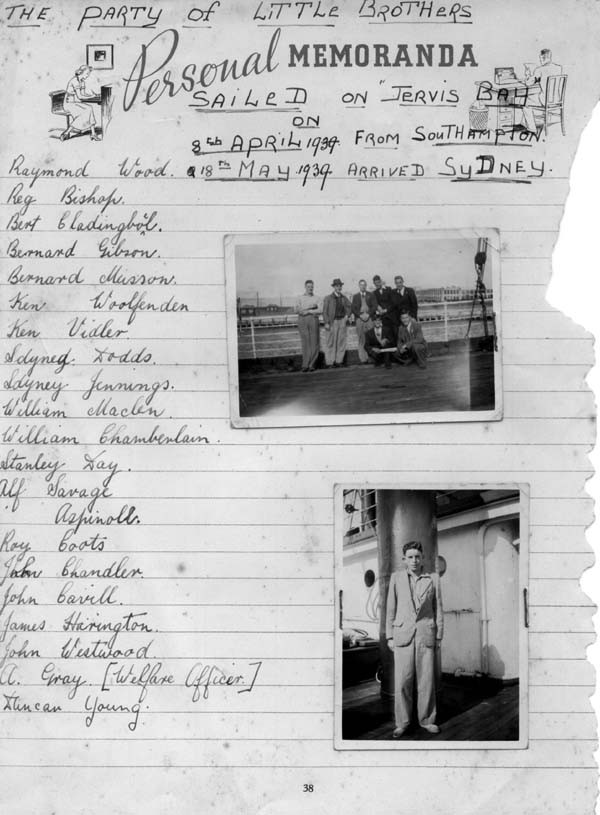 THE PARTY OF LITTLE BROTHERS
Personal MEMORANDA
SAILED ON "JERVIS BAY
ON
8th APRIL 1939. FROM SOUTHAMPTON.
18TH MAY 1939. ARRIVED SYDNEY.
Raymond Wood.
Reg Bishop.
Bert Cladingbol.
Bernard Gibson.
Bernard Musson.
Ken Woolfenden
Ken Vidler
Sdyney Dodds.
Sdyney Jennings.
William Maclen.
William Chamberlain.
Stanley Day.
Alf Savage
Aspinoll.
Roy Coots
John Chandler.
John Cavill.
James Harington.
John Westwood.
A. Gray. [Welfare Officer.]
Duncan Young.
38